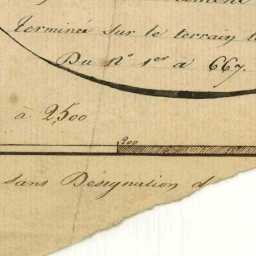 terminée sur le terrain le
Du N° 1er à 667.
à 2500
200
sans Désignation d